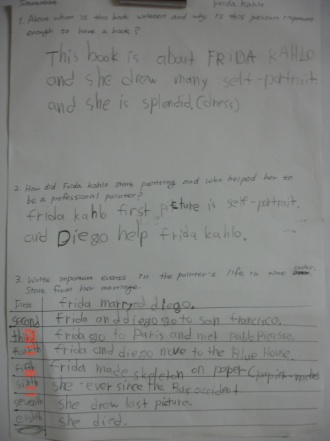 frida kahlo
1. About whom is this book written and why is this person important
enough to have a book?
This book is about FRiDA KAHLO
and she drew many self-portrait
and she is splendid.(dress)
2. How did Frida kahlo start painting and who helped her to
be a professional painter?
frida kahlo first picture is self-portrait.
and Diego help frida kahlo.
3. Write important events in the painter's life in time order.
Start from her marriage.
First frida married diego.
second frida and diego go to San francisco.
third frida go to Paris and met pablo Picasso.
fourth frida and diego move to the Blue House.
fifth frida made skeleton on paper(
sixth she ever since the Bus accident
seventh she drew last picture.
eighth she died.